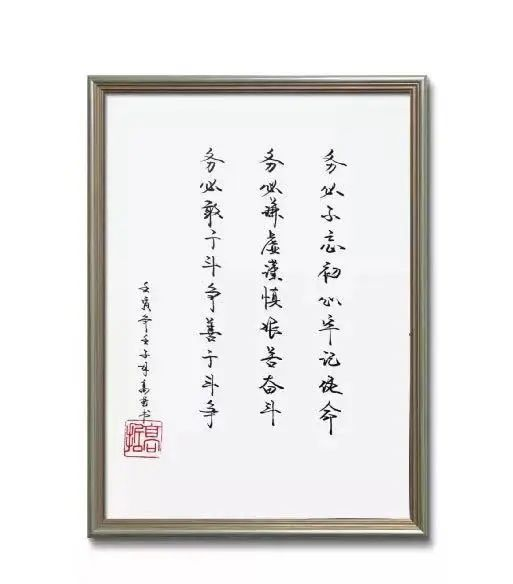 务必不忘初心牢记使命
务必谦虚谨慎艰苦奋斗
务必敢于斗争善于斗争
壬寅年
书